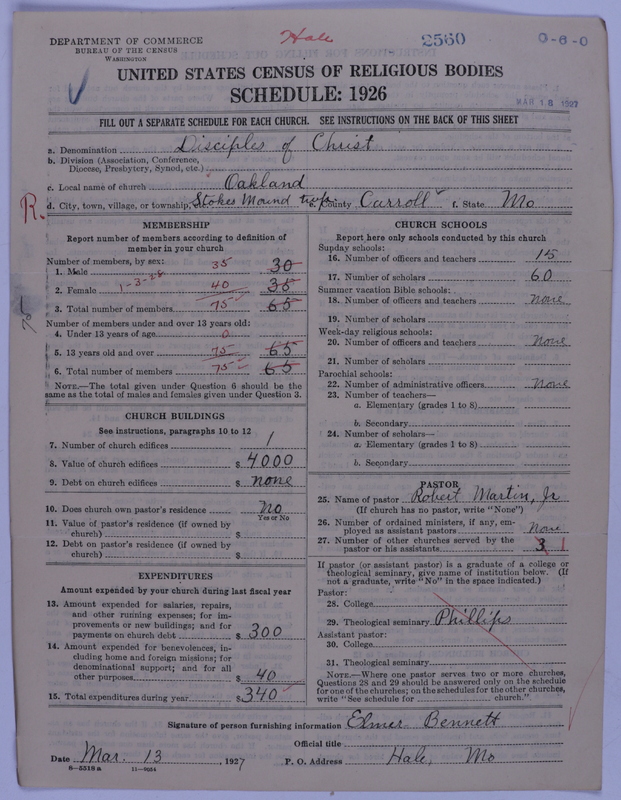 DEPARTMENT OF COMMERCE
BUREAU OF THE CENSUS
WASHINGTON
Hale
2560
0-6-0
UNITED STATES CENSUS OF RELIGIOUS BODIES
SCHEDULE: 1926
MAR 18 1927
FILL OUT A SEPARATE SCHEDULE FOR EACH CHURCH. SEE INSTRUCTIONS ON THE BACK OF THIS SHEET
a. Denomination Disciples of Christ
b. Division (Association, Conference,
Diocese, Presbytery, Synod, etc.)
c. Local name of church Oakland
d. City, town, village, or township, etc. Stokes Mound twp. County Carroll f. State Mo
R.
MEMBERSHIP
Report number of members according to definition of
member in your church
Number of members, by sex:
1. Male 35 30
2. Female 1-3-28 40 35
3. Total number of members 75 65
75
Number of members under and over 13 years old:
4. Under 13 years of age 0
5. 13 years old and over 75 65
6. Total number of members 75 65
NOTE.—The total given under Question 6 should be
same as the total of males and females given under Question 3.
CHURCH BUILDINGS
See instructions, paragraphs 10 to 12
7. Number of church edifices 1
8. Value of church edifices $ 4000
9. Debt on church edifices $ none
10. Does church own pastor's residence No
Yes or No
11. Value of pastor's residence (if owned by
church) $
12. Debt on pastor's residence (if owned by
church) $
EXPENDITURES
Amount expended by your church during last fiscal year
13. Amount expended for salaries, repairs,
and other running expenses; for im-
provements or new buildings; and for
payments on church debt $ 300
14. Amount expended for benevolences, in-
cluding home and foreign missions; for
denominational support; and for all
other purposes $ 40
15. Total expenditures during year $ 340
CHURCH SCHOOLS
Report here only schools conducted by this church
Sunday schools:
16. Number of officers and teachers 15
17. Number of scholars 60
Summer vacation Bible schools:
18. Number of officers and teachers none
19. Number of scholars
Week-day religious schools:
20. Number of officers and teachers None
21. Number of scholars
Parochial schools:
22. Number of administrative officers None
23. Number of teachers—
a. Elementary (grades 1 to 8)
b. Secondary
24. Number of scholars—
a. Elementary (grades 1 to 8)
b. Secondary
PASTOR
25. Name of pastor Robert Martin, Jr
(If church has no pastor, write "None")
26. Number of ordained ministers, if any, em-
ployed as assistant pastors None
27. Number of other churches served by the
pastor or his assistants 3 1
If pastor (or assistant pastor) is a graduate of a college or
theological seminary, give name of institution below. (If
not a graduate, write "No" in the space indicated.)
Pastor:
28. College
29. Theological seminary Phillips
Assistant pastor:
30. College
31. Theological seminary
NOTE.—Where one pastor serves two or more churches,
Questions 28 and 29 should be answered only on the schedule
for one of the churches; on the schedules for the other churches,
write "See schedule for church."
Signature of person furnishing information Elmer Bennett
Official title
Date Mar. 13, 1927 P. O. Address Hale, Mo
8—5518 a 11—9054